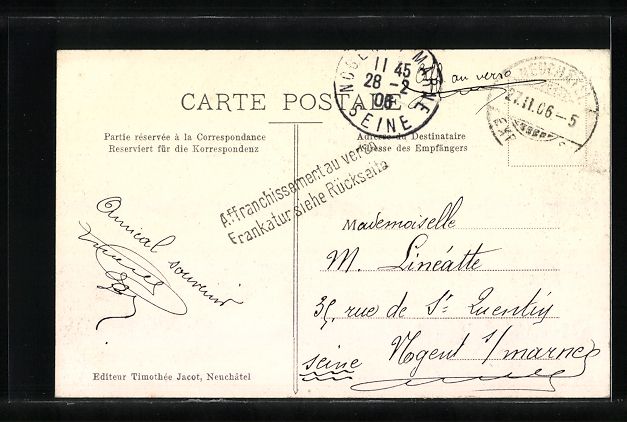 au verso
NOGENT S MARNE
11 45
28 - 2
06
SEINE
27.II.06-5
CARTE POSTALE
Partie réservée à la Correspondance
Reserviert für die Korrespondenz
Adresse du Destinataire
Adresse des Empfängers
Affranchissement au verso
Frankatur siehe Rückseite
Amical
souvenir
Mademoiselle
M. Linéatte
35, rue de St. Quentin
Nogent s/marne
seine
Editeur Timothée Jacot, Neuchâtel